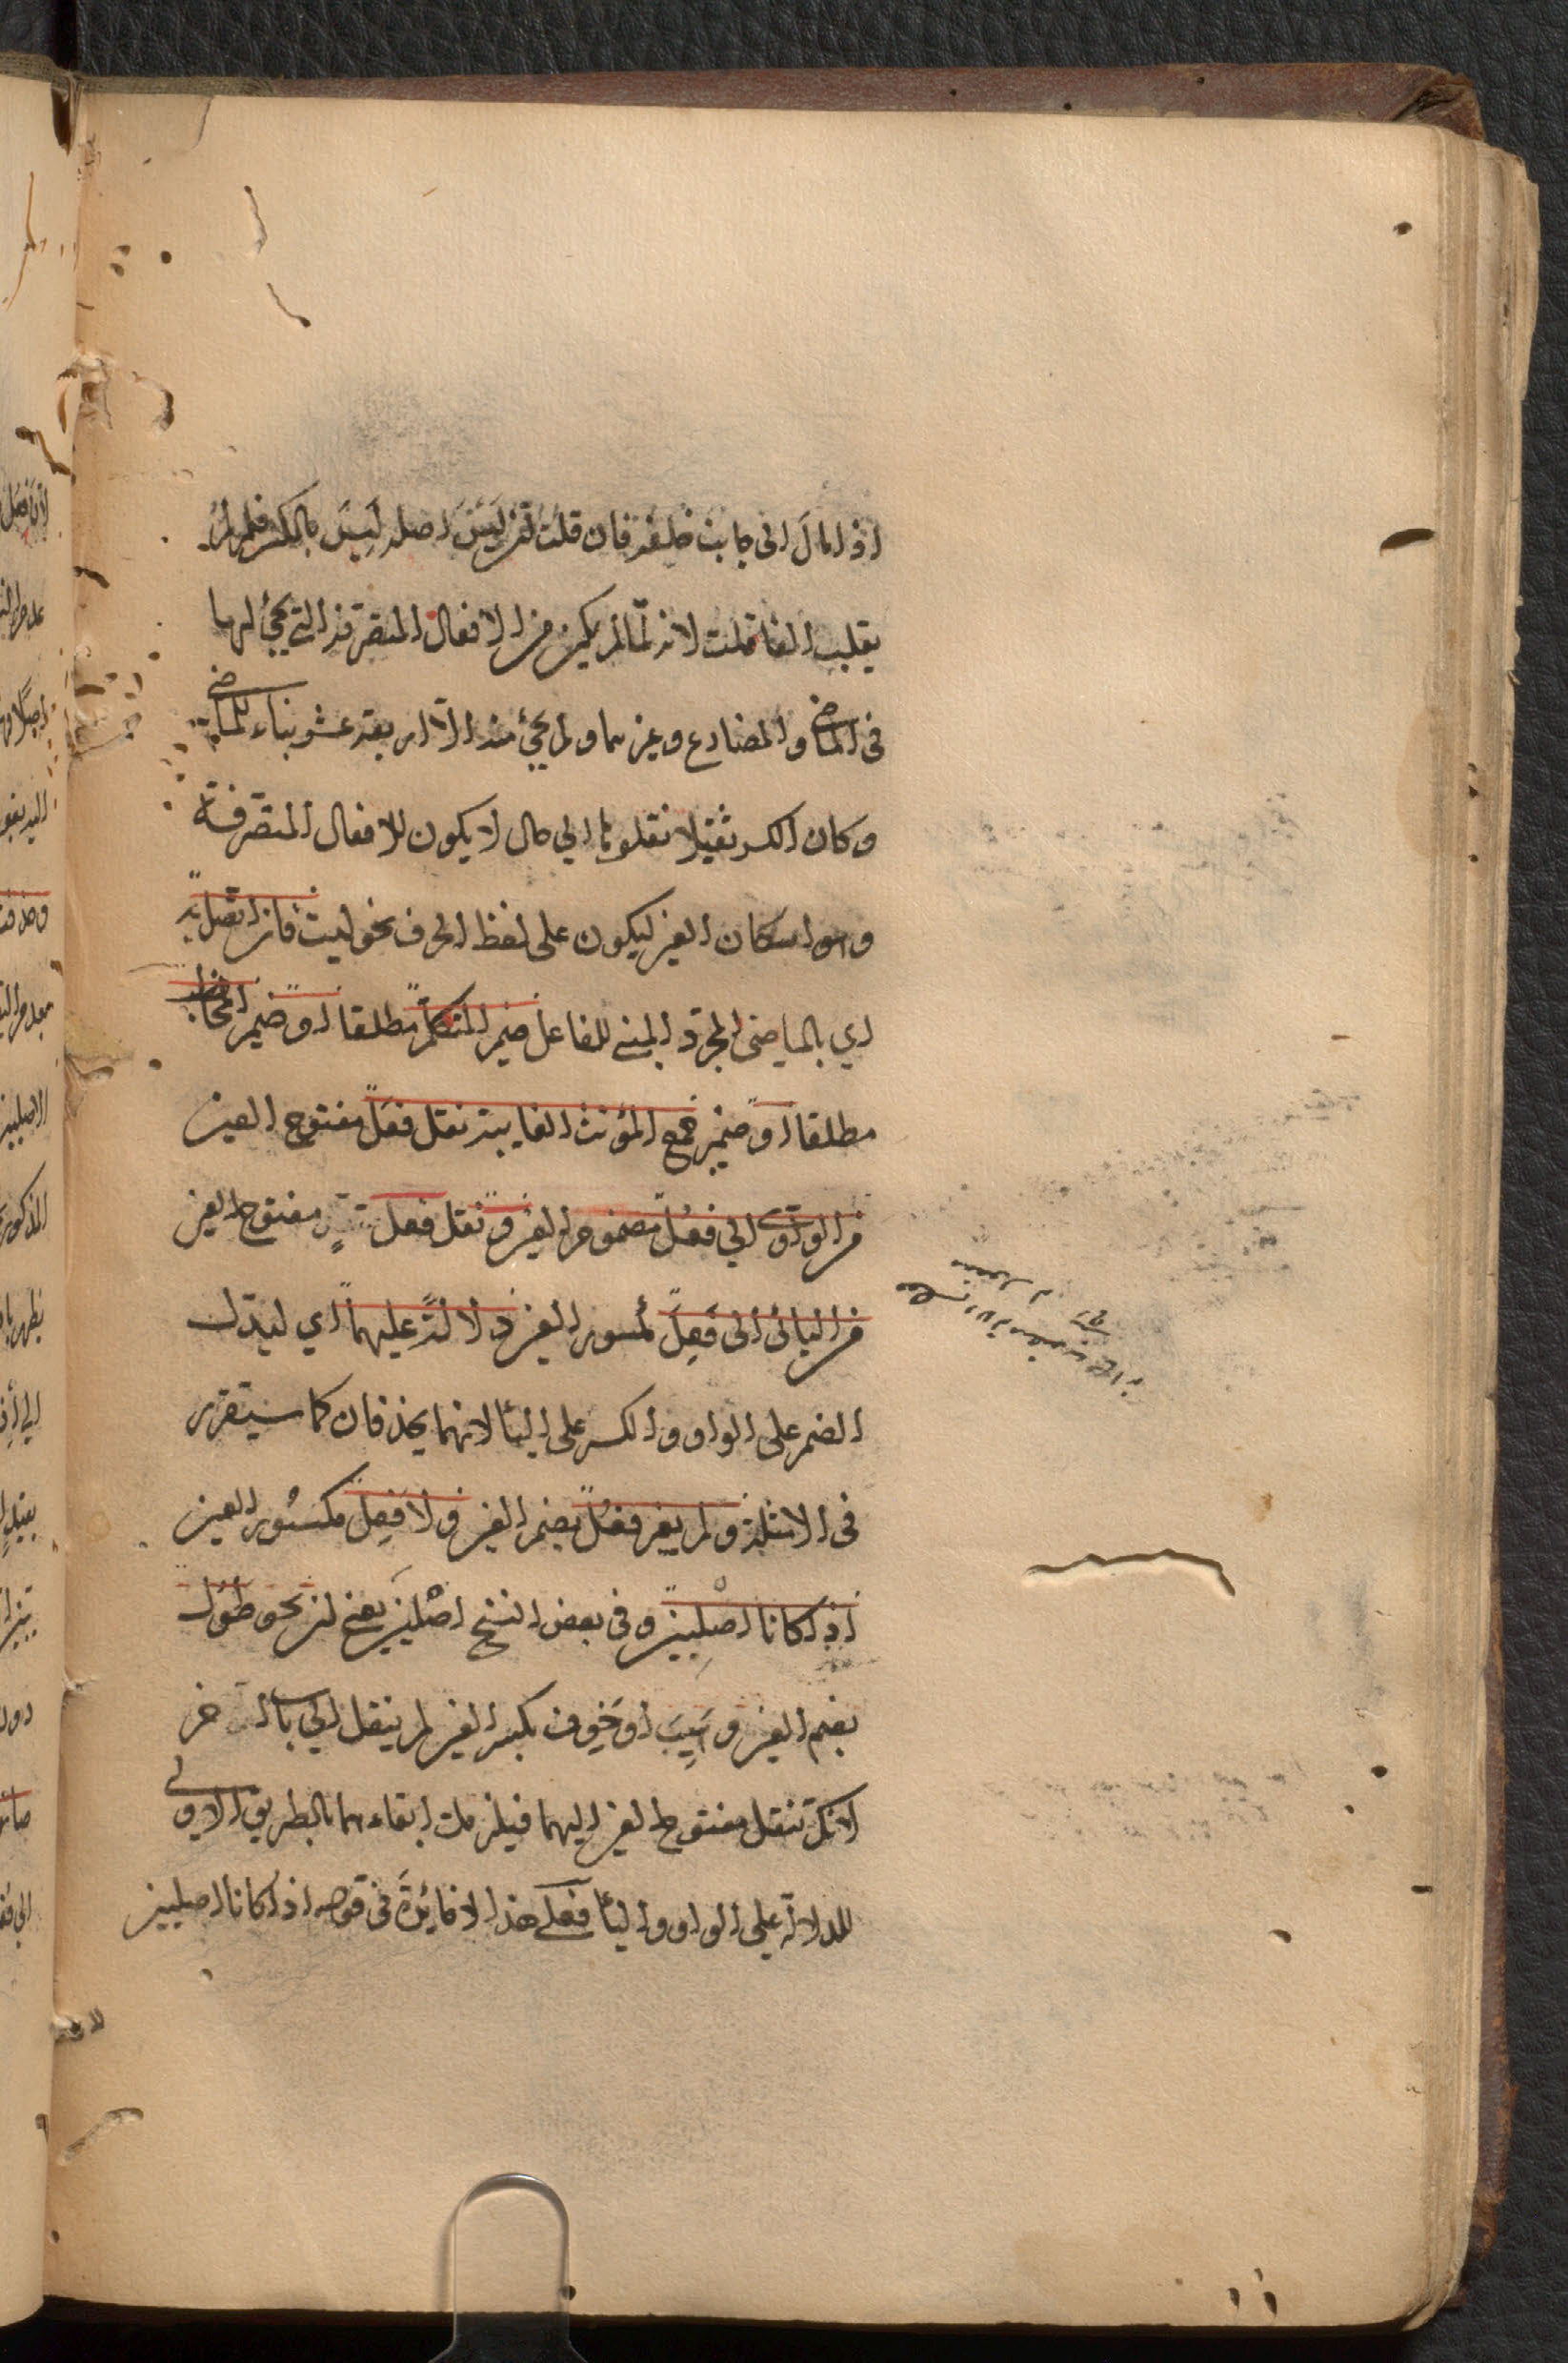 اذا مال الى جانب خلفه فان قلت ان ليس اصله ليس بالكسر فلم لم
يقلب الفا قلت لانه لما لم يكن من الافعال المتصرفة التي يجئ لها
فى الماضي والمضارع وغيرهما ولم يجئ منه الا اربعة عشر بناء للماضي
وكان الكسر ثقيلا نقلوها الي حال لا يكون للافعال المتصرفة
وهو اسكان العين ليكون على لفظ الحرف نحو ليت فان اتصل به
اي بالماضى المجرد المبني للفاعل ضمير المتكلم مطلقا او ضمير المخاطب
مطلقا او ضمير جمع المؤنث الغايبة نقل فعل مفتوح العين
من الواوي الي فعُل مضموم العين و نقل فعل مفتوح العين
من اليائى الى فَعِل مكسور العين دلالةً عليهما اي ليدل
الضم على الواو والكسر على اليأ لانهما يحذفان كما سيتقرر
فى الامثلة ولم يغير فعُل بضم العين ولا فَعِل مكسُور العين
اذا كانا اصليين وفى بعض النسخ اصْليَين يعني ان نحو طَوُل
بضم العين و هَيِبَ او خَوِف بكسر العين لم ينقل الي باب اخر
لانك تنقل مفتوح العين اليهما فيلزمك ابقاءهما بالطريق الاولى
للدلالة على الواو واليأ فعلى هذا لا فائدةَ فى قوله اذا كانا اصليين